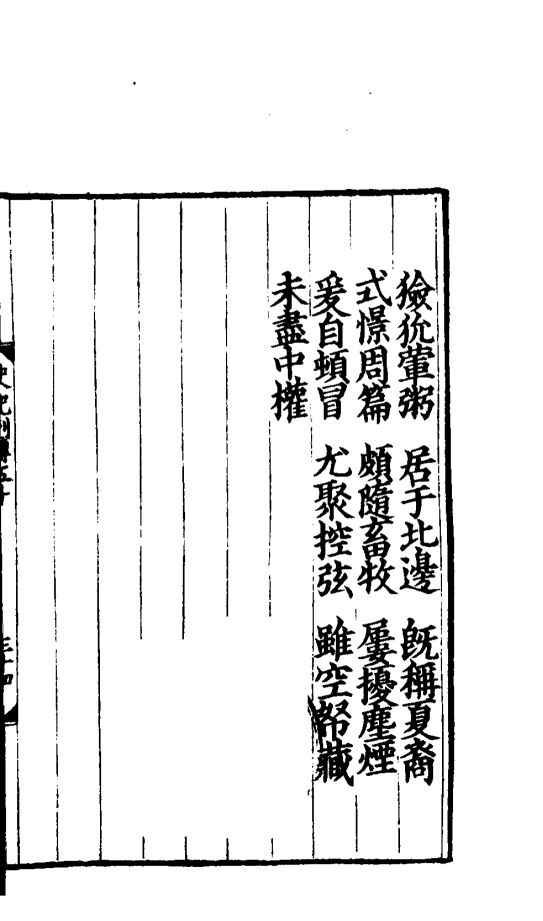 獫狁葷粥　居于北邊　旣稱夏裔
式憬周篇　頗隨畜牧　屢擾塵煙
爰自頓冒　尤聚控弦　雖空帑藏
未盡中權
史記列傳五十